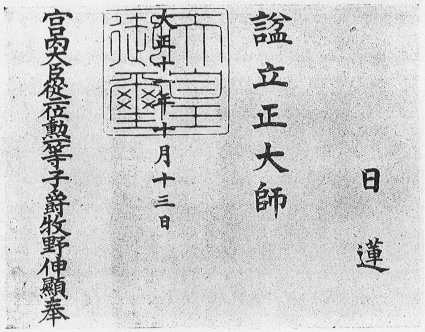 日蓮
諡立正大師
大正十一年十月十三日
天皇御璽
宮内大臣從二位勲一等子爵牧野伸顯奉